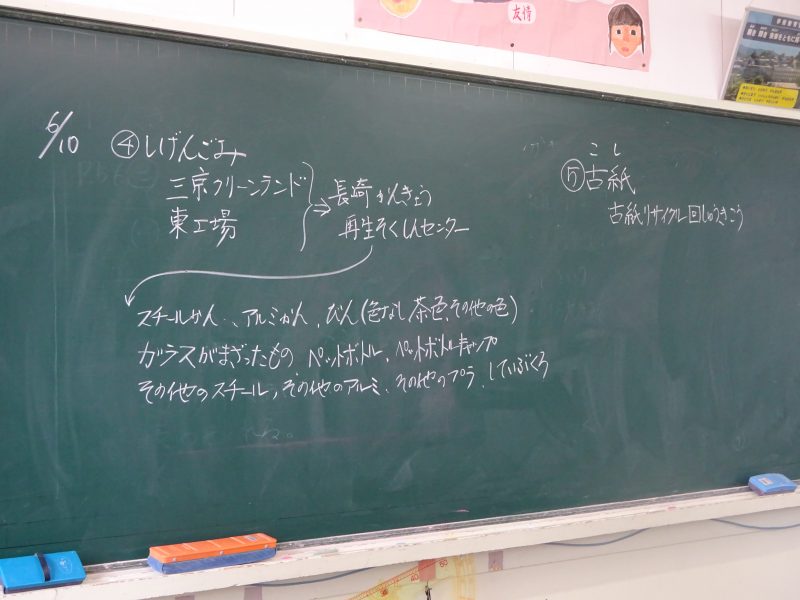 友情
6/10
④しげんごみ
三京クリーンランド
東工場
⇒長崎かんきょう
再生そくしんセンター
スチールかん、アルミかん、びん(色なし茶色、その他の色)
ガラスがまざったもの ペットボトル、ペットボトルキャップ
その他のスチール、その他のアルミ、その他のプラ、していぶくろ
こし
⑤古紙
古紙リサイクル回しゅうきこう